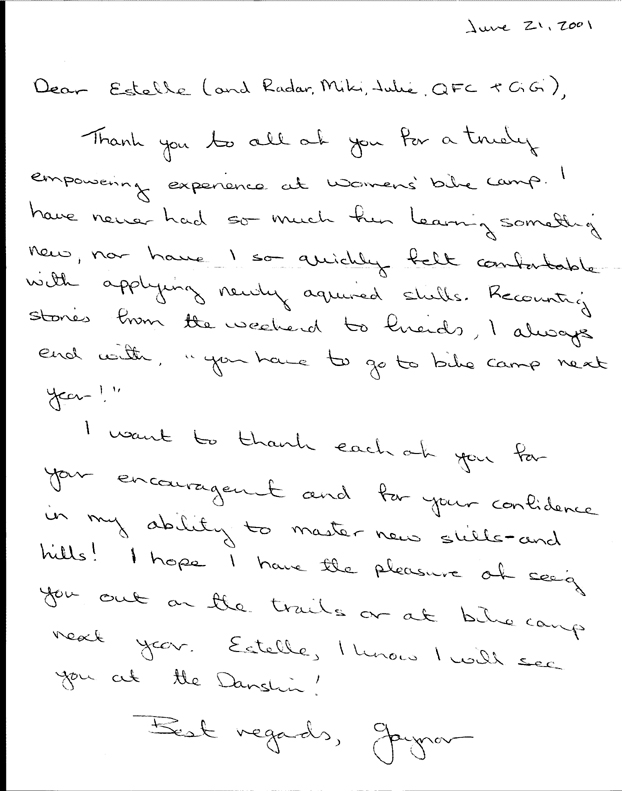 June 21, 2001
Dear Estelle (and Radar, Miki, Julie, QFC + GiGi),
Thank you to all of you for a truely
empowering experience at womens' bike camp. I
have never had so much fun learning something
new, nor have I so quickly felt comfortable
with applying newly aquired skills. Recounting
stories from the weekend to freids, I always
end with, "you have to go to bike camp next
year!"
I want to thank each of you for
your encouragement and for your confidence
in my ability to master new skills-and
hills! I hope I have the pleasure of seeing
you out on the trails or at bike camp
next year. Estelle, I know I will see
you at the Danskin!
Best regards, Gaynor